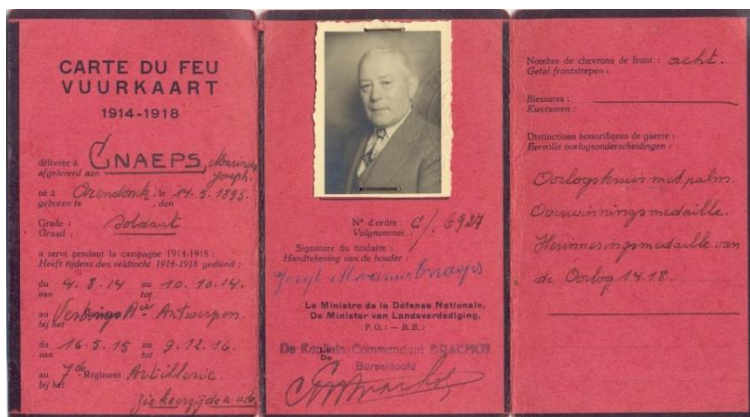 CARTE DU FEU
VUURKAART
1914-1918
délivrée à
afgeleverd aan
CNAEPS, Marinus
Joseph.
né à Arendonk, le 14.5.1893.
geboren te , den
Grade :
Graad :
Soldaat
a servi pendant la campagne 1914-1918 :
Heeft tijdens den veldtocht 1914-1918 gediend :
du 4.8.14 au 10.10.14.
van tot
au Antwerpen
bij het
du 16.5.15 au 9.12.16.
van tot
au 7de Regiment Artillerie
bij het
Zie keerzijde a.u.b.
N° d'ordre :
Volgnummer :
C/. 6924
Signature du titulaire :
Handtekening van de houder :
Joseph Marinus Cnaeps
Le Ministre de la Défense Nationale,
De Minister van Landsverdediging,
P.O. : — B.B. :
De Kapitein-Commandant
De
Bureelhoofd
Nombre de chevrons de front : acht.
Getal frontstrepen :
Blessures :
Kwetsuren :
Distinctions honorifiques de guerre :
Eervolle oorlogsonderscheidingen :
Oorlogskruis met palm.
Overwinningsmedaille.
Herinneringsmedaille van
de Oorlog 14.18.